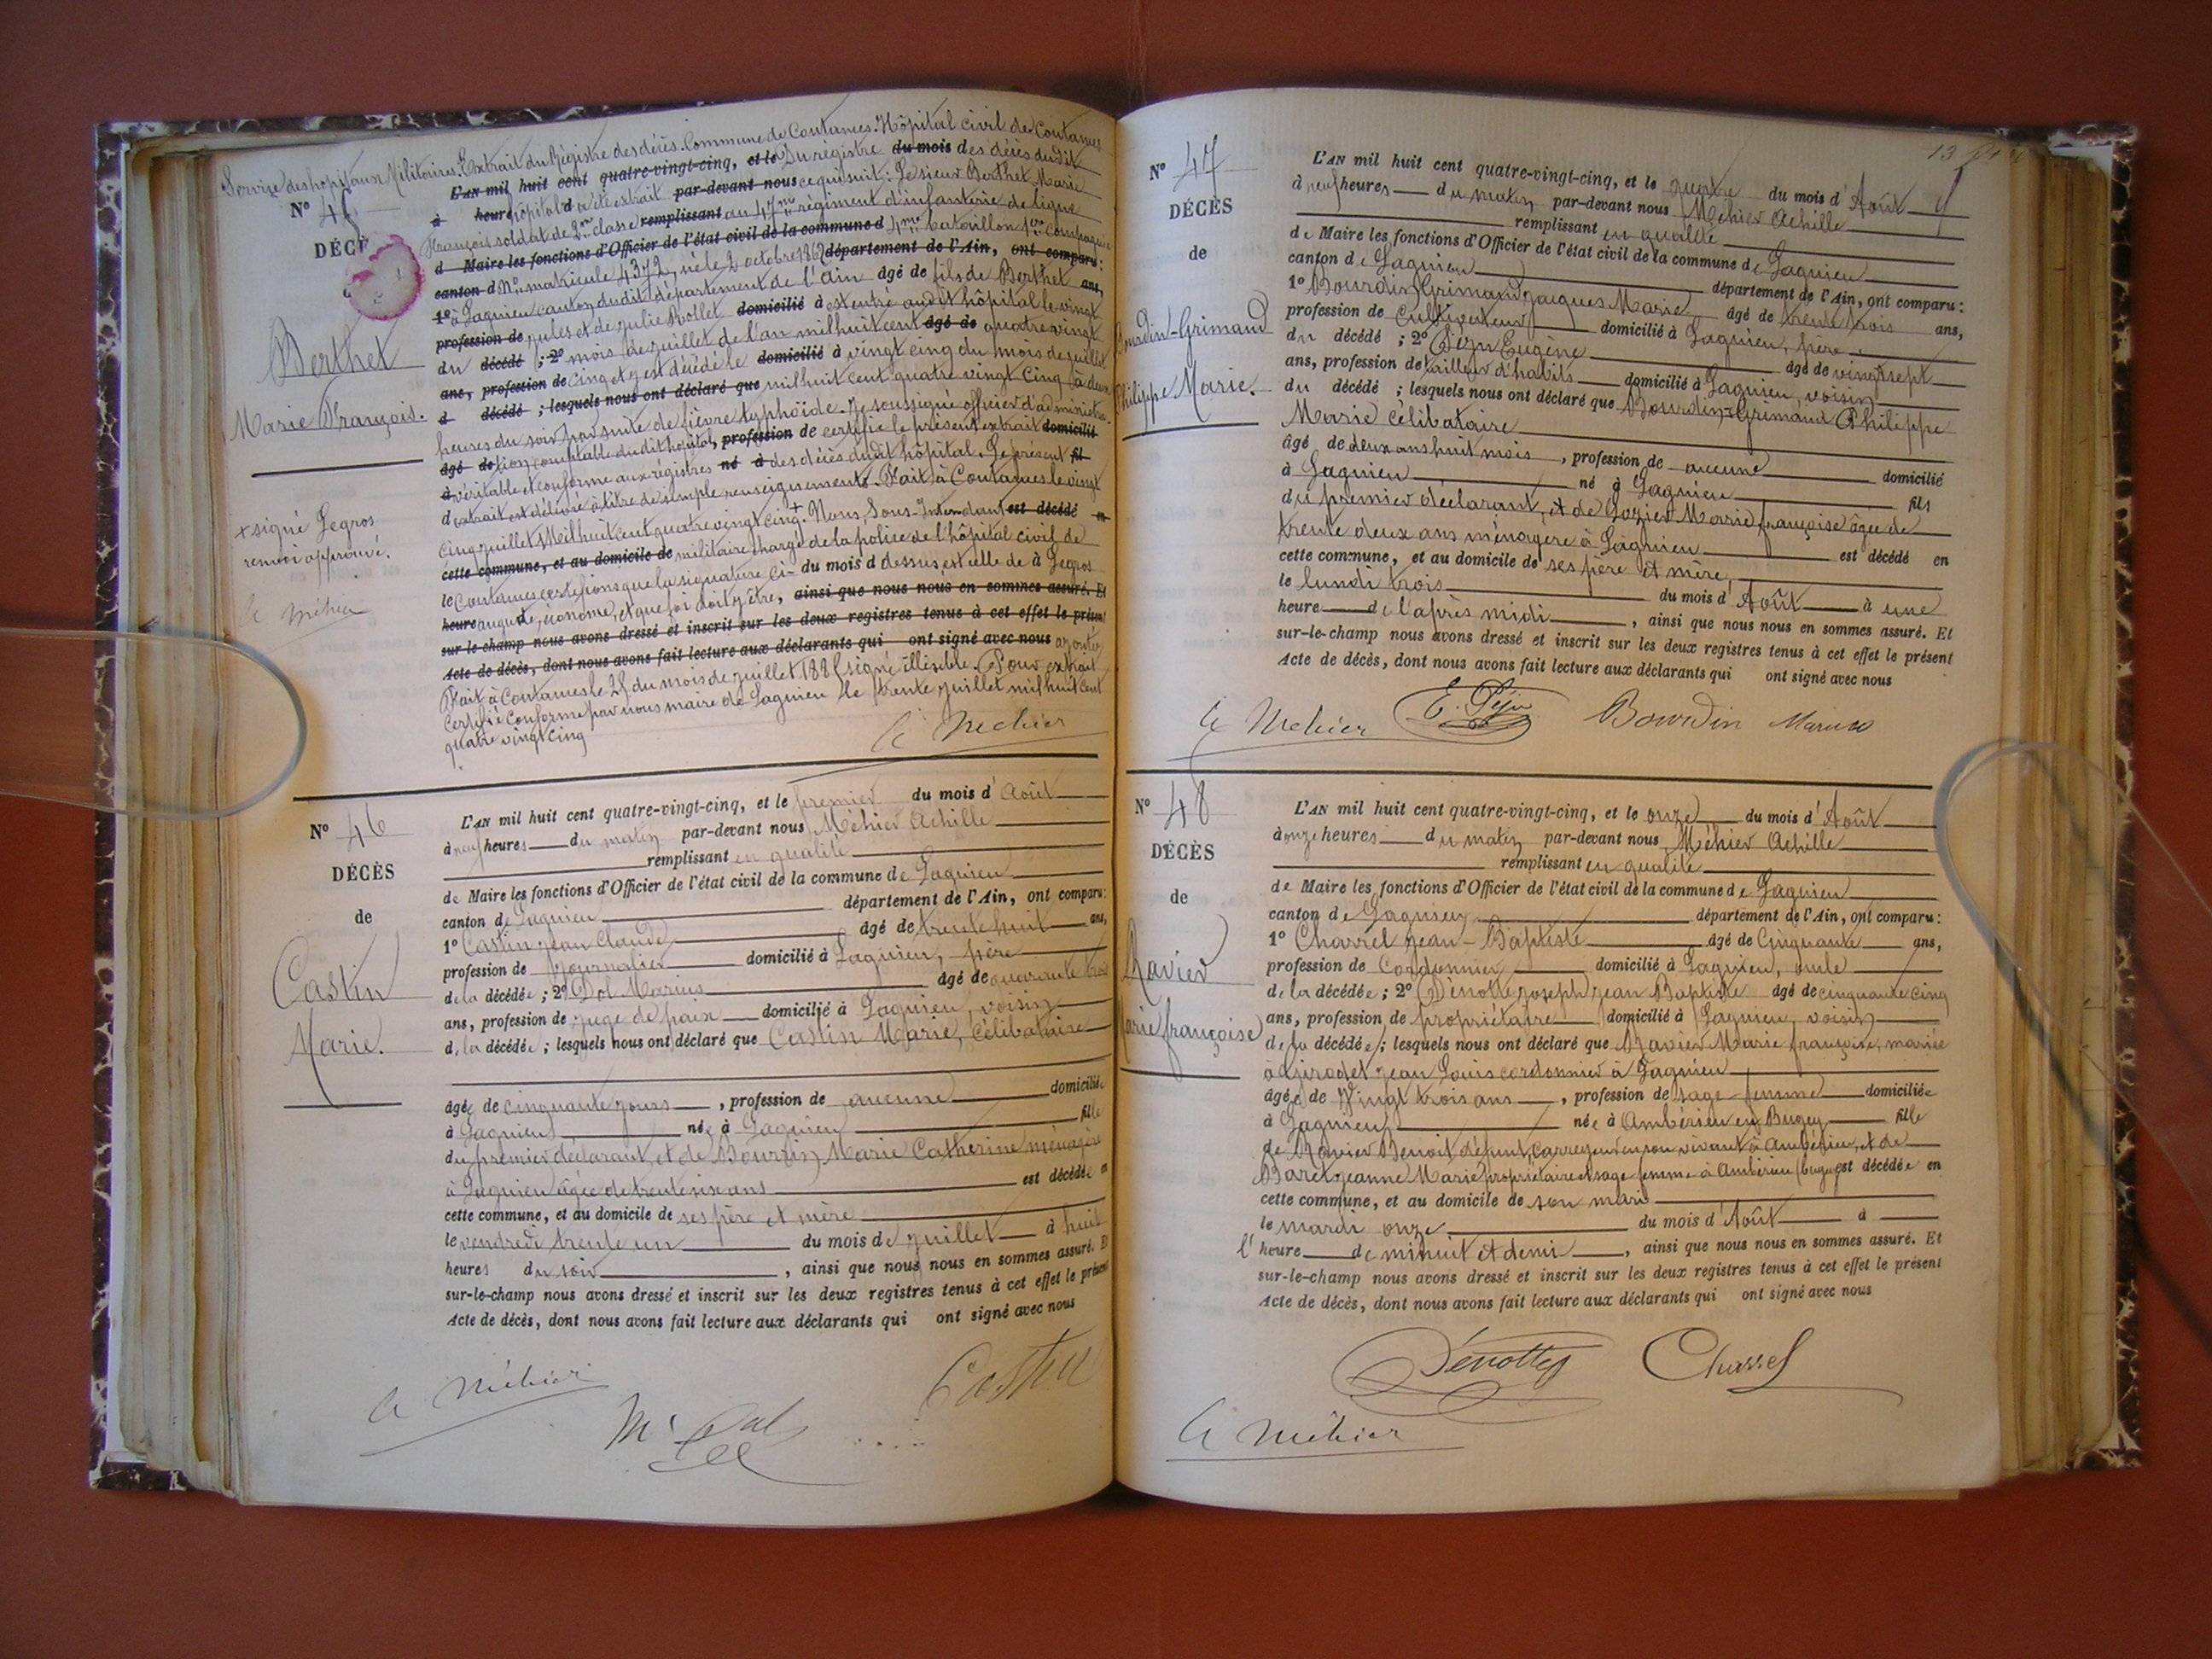 Service des hopitaux Militaires. Extrait du Régistre des décès. Commune de Coutances. Hôpital civil de Coutances
N° 45
DÉCÈ
Berthet
Marie François.
+ signé Legros
renvoi approuvé.
A Méhier
L'AN mil huit cent quatre-vingt-cinq, et le Du régistre du mois des décès du dit
à heure hôpital d a été extrait par-devant nous ce qui suit: Le sieur Berthet Marie
François soldat de 2me classe remplissant au 47me régiment d'infanterie de ligne
d Maire les fonctions d'Officier de l'état civil de la commune d 4me bataillon 1ère Compagnie
canton d No matricule 4372, né le 2 octobre 1862 département de l'Ain, ont comparu:
1° à Lagnieu canton dudit département de l'Ain âgé de fils de Berthet ans,
profession de jules et de julie Rollet domicilié à est entré audit hôpital le vingt
du décédé ; 2° mois de juillet de l'an mil huit cent âgé de quatre vingt
ans, profession de cinq et y est décédé le domicilié à vingt cinq du mois de juillet
d décédé ; lesquels nous ont déclaré que mil huit cent quatre vingt cinq à deux
heures du soir par suite de fièvre typhoïde. Je soussigné officier d'administra-
âgé de tion comptable dudit hôpital, profession de certifie le présent extrait domicilié
à véritable et conforme aux régistres né à des décès dudit hôpital. Le présent fil
d extrait est délivré à titre de simple renseignements. Fait à Coutances le vingt
cinq juillet Mil huit cent quatre vingt cinq +. Nous, Sous-Intendant est décédé en
cette commune, et au domicile de militaire chargé de la police de l'hôpital civil de
le Coutances certifions que la signature ci- du mois d dessus est celle de à Legros
heure auguste, économe, et que foi doit y être, ainsi que nous nous en sommes assuré. Et
sur-le-champ nous avons dressé et inscrit sur les deux registres tenus à cet effet le présent
Acte de décès, dont nous avons fait lecture aux déclarants qui ont signé avec nous ajoutée
Fait à Coutances le 25 du mois de juillet 1885 signé illisible. Pour extrait
certifié conforme par nous maire de Lagnieu le trente juillet mil huit cent
quatre vingt cinq
A Méhier
N° 46
DÉCÈS
de
Castin
Marie.
L'AN mil huit cent quatre-vingt-cinq, et le premier du mois d'Août
à neuf heures du matin par-devant nous Méhier Achille
remplissant en qualité
de Maire les fonctions d'Officier de l'état civil de la commune de Lagnieu
canton de Lagnieu département de l'Ain, ont comparu:
1° Castin Jean Claude âgé de trente huit ans,
profession de journalier domicilié à Lagnieu, père
de la décédée ; 2° Dol Marius âgé de quarante trois
ans, profession de juge de paix domicilié à Lagnieu, voisin
de la décédée ; lesquels nous ont déclaré que Castin Marie, Célibataire
âgée de cinquante jours , profession de aucune domiciliée
à Lagnieu née à Lagnieu fille
du premier déclarant, et de Bourdin Marie Catherine ménagère
à Lagnieu âgée de trente six ans est décédée en
cette commune, et au domicile de ses père et mère
le vendredi trente un du mois de juillet à huit
heures du soir , ainsi que nous nous en sommes assuré. Et
sur-le-champ nous avons dressé et inscrit sur les deux registres tenus à cet effet le présent
Acte de décès, dont nous avons fait lecture aux déclarants qui ont signé avec nous
A Méhier
M Dol
Castin
13
N° 47
DÉCÈS
de
Bourdin-Grimaud
Philippe Marie.
L'AN mil huit cent quatre-vingt-cinq, et le quatre du mois d'Août
à neuf heures du matin par-devant nous Méhier Achille
remplissant en qualité
de Maire les fonctions d'Officier de l'état civil de la commune de Lagnieu
canton de Lagnieu département de l'Ain, ont comparu:
1° Bourdin Grimaud Jacques Marie âgé de trente trois ans,
profession de Cultivateur domicilié à Lagnieu, père
du décédé ; 2° Péju Eugène âgé de vingt sept
ans, profession de tailleur d'habits domicilié à Lagnieu, voisin
du décédé ; lesquels nous ont déclaré que Bourdin-Grimaud Philippe
Marie célibataire
âgé de deux ans huit mois , profession de aucune domicilié
à Lagnieu né à Lagnieu fils
du premier déclarant, et de Lozier Marie françoise âgée de
trente deux ans ménagère à Lagnieu est décédé en
cette commune, et au domicile de ses père et mère,
le lundi trois du mois d'Août à une
heure de l'après midi , ainsi que nous nous en sommes assuré. Et
sur-le-champ nous avons dressé et inscrit sur les deux registres tenus à cet effet le présent
Acte de décès, dont nous avons fait lecture aux déclarants qui ont signé avec nous
A Méhier E. Péju Bourdin
N° 48
DÉCÈS
de
Ravier
Marie françoise
L'AN mil huit cent quatre-vingt-cinq, et le onze du mois d'Août
à onze heures du matin par-devant nous Méhier Achille
remplissant en qualité
de Maire les fonctions d'Officier de l'état civil de la commune de Lagnieu
canton de Lagnieu département de l'Ain, ont comparu:
1° Charrel Jean-Baptiste âgé de Cinquante ans,
profession de Cordonnier domicilié à Lagnieu, oncle
de la décédée ; 2° Dénotte Joseph Jean Baptiste âgé de cinquante cinq
ans, profession de propriétaire domicilié à Lagnieu, voisin
de la décédée ; lesquels nous ont déclaré que Ravier Marie françoise, mariée
à Girodet Jean Louis cordonnier à Lagnieu
âgée de Vingt trois ans , profession de sage femme domiciliée
à Lagnieu née à Ambérieu en Bugey fille
de Ravier Benoit défunt, Carreyeur en son vivant à Ambérieu, et de
Baret jeanne Marie propriétaire et sage femme à Ambérieu (bugey) est décédée en
cette commune, et au domicile de son mari
le mardi onze du mois d'Août à
l'heure de minuit et demi , ainsi que nous nous en sommes assuré. Et
sur-le-champ nous avons dressé et inscrit sur les deux registres tenus à cet effet le présent
Acte de décès, dont nous avons fait lecture aux déclarants qui ont signé avec nous
Dénotte Charrel
A Méhier